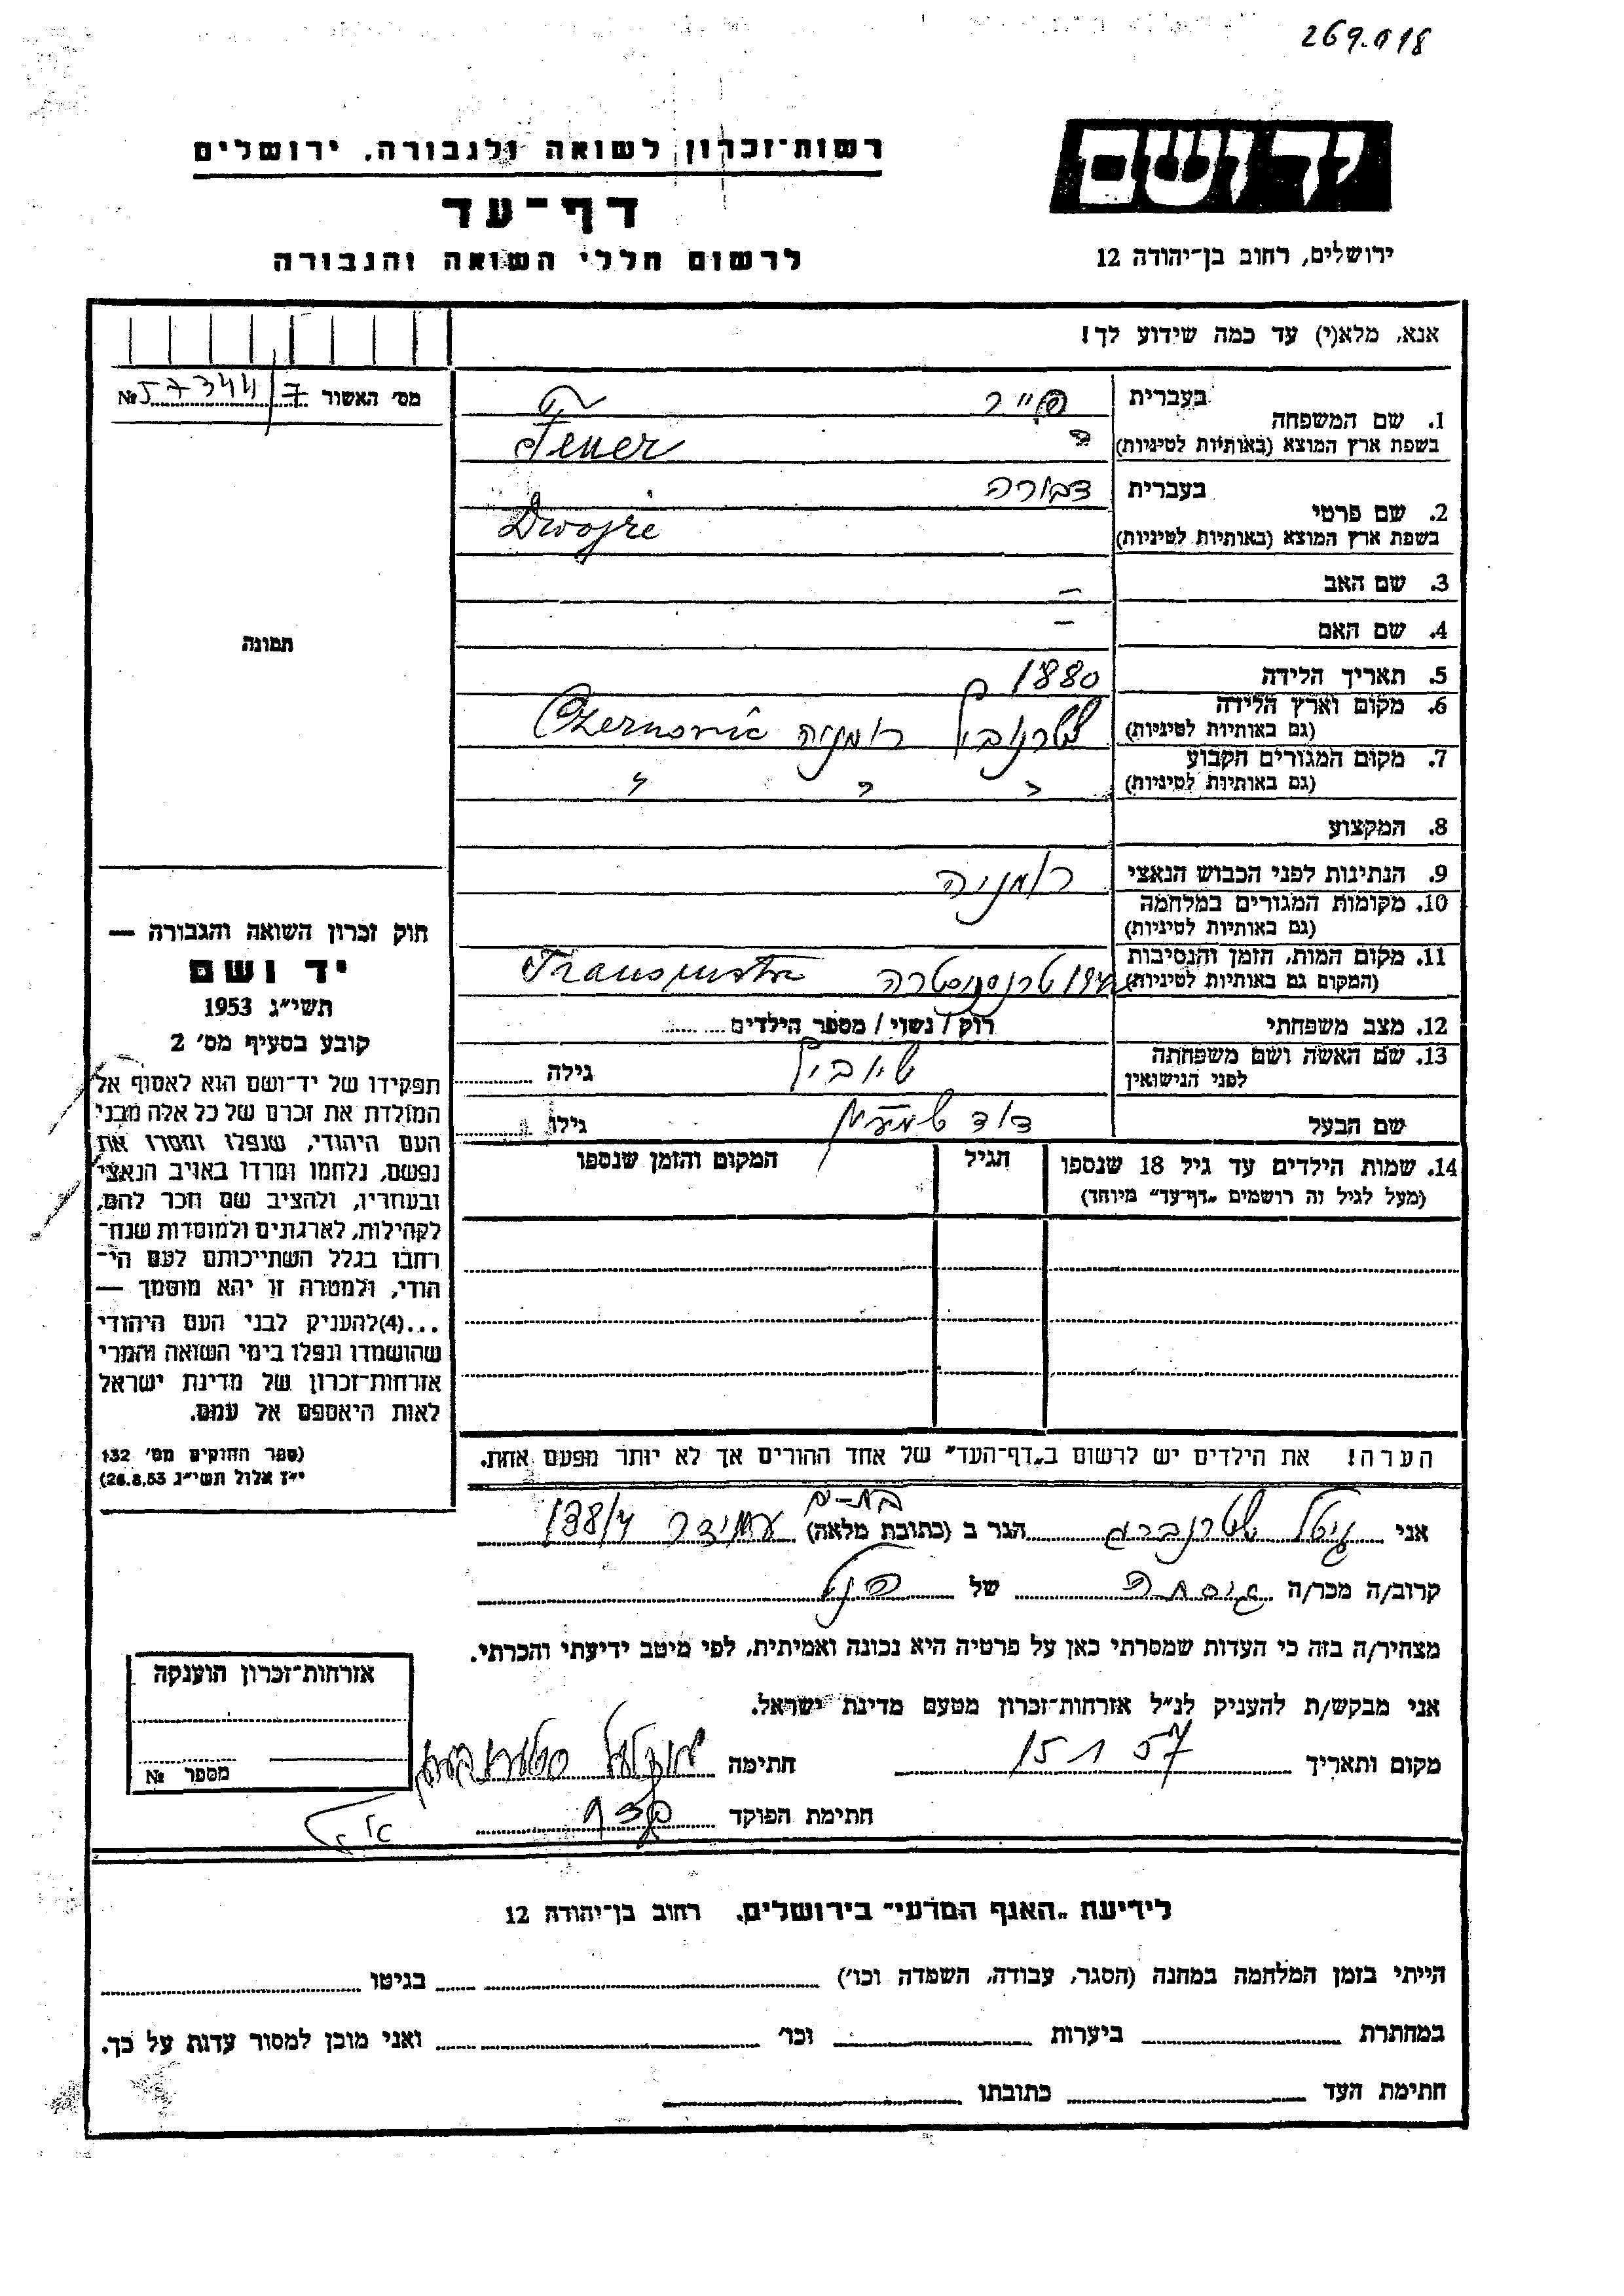 269.018
יד ושם
ירושלים, רחוב בן־יהודה 12
רשות־זכרון לשואה ולגבורה, ירושלים
דף־עד
לרשום חללי השואה והגבורה
אנא, מלא(י) עד כמה שידוע לך!
מס' האשור 57344/7 №
תמונה
חוק זכרון השואה והגבורה —
יד ושם
תשי״ג 1953
קובע בסעיף מס' 2
תפקידו של יד־ושם הוא לאסוף אל
המולדת את זכרם של כל אלה מבני
העם היהודי, שנפלו ומסרו את
נפשם, נלחמו ומרדו באויב הנאצי
ובעוזריו, ולהציב שם וזכר להם,
לקהילות, לארגונים ולמוסדות שנח־
רבו בגלל השתייכותם לעם הי־
הודי, ולמטרה זו יהא מוסמך —
...(4)להעניק לבני העם היהודי
שהושמדו ונפלו בימי השואה והמרי
אזרחות־זכרון של מדינת ישראל
לאות היאספם אל עמם.
(ספר החוקים מס' 132
י״ז אלול תשי״ג 26.8.53)
1. שם המשפחה
בעברית פייר
בשפת ארץ המוצא (באותיות לטיניות) Feuer
2. שם פרטי
בעברית דבורה
בשפת ארץ המוצא (באותיות לטיניות) Dwojre
3. שם האב —
4. שם האם —
5. תאריך הלידה 1880
6. מקום וארץ הלידה
(גם באותיות לטיניות) רומניה
7. מקום המגורים הקבוע
(גם באותיות לטיניות) " " "
8. המקצוע
9. הנתינות לפני הכבוש הנאצי רומניה
10. מקומות המגורים במלחמה
(גם באותיות לטיניות)
11. מקום המות, הזמן והנסיבות
(המקום גם באותיות לטיניות) טרנסניסטרה
12. מצב משפחתי רוק / נשוי / מספר הילדים
13. שם האשה ושם משפחתה
לפני הנישואין גילה
שם הבעל דוד גילו
14. שמות הילדים עד גיל 18 שנספו
(מעל לגיל זה רושמים „דף־עד״ מיוחד)
הגיל
המקום והזמן שנספו
הערה! את הילדים יש לרשום ב„דף־העד״ של אחד ההורים אך לא יותר מפעם אחת.
אני שטרנברג הגר ב (כתובת מלאה) בת-ים עמידר 138/4
קרוב/ה מכר/ה של
מצהיר/ה בזה כי העדות שמסרתי כאן על פרטיה היא נכונה ואמיתית, לפי מיטב ידיעתי והכרתי.
אני מבקש/ת להעניק לנ״ל אזרחות־זכרון מטעם מדינת ישראל.
מקום ותאריך 15 1 57 חתימה
חתימת הפוקד
אזרחות־זכרון הוענקה
מספר №
לידיעת „האגף המדעי״ בירושלים, רחוב בן־יהודה 12
הייתי בזמן המלחמה במחנה (הסגר, עבודה, השמדה וכו') בגיטו
במחתרת ביערות וכו' ואני מוכן למסור עדות על כך.
חתימת העד כתובתו